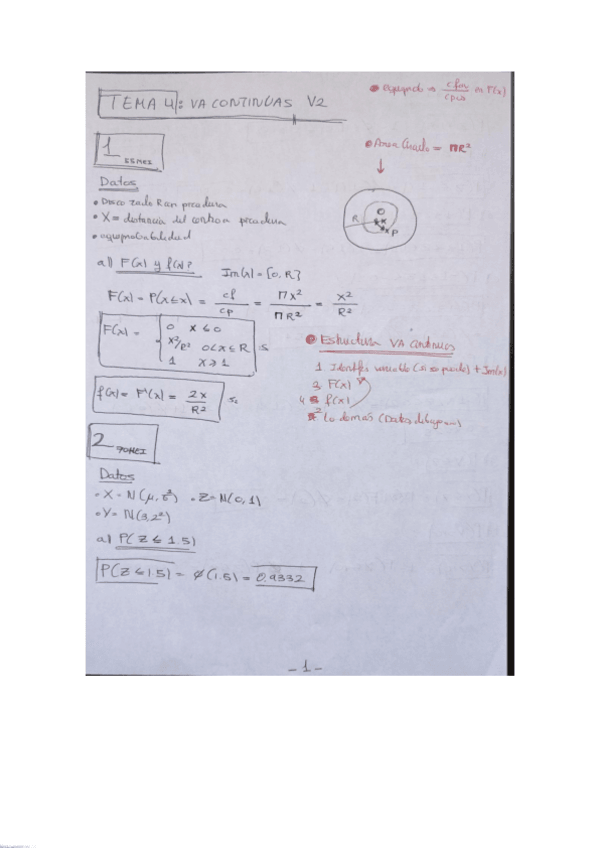 TEMA 4: VA CONTINUAS V2
• equiprob ⇒ cfav/cpos en F(x)
• Area Circulo = πR²
1
Datos
• Disco radio R con picadura
• X = distancia del centro a picadura
• equiprobabilidad
R O x P
a) F(x) y f(x)?
Im(x) = [0, R]
F(x) = P(X≤x) = cf/cp = πx²/πR² = x²/R²
F(x) = { 0 x ≤ 0
x²/R² 0<x≤R
1 x ≥ 1
f(x) = F'(x) = 2x/R²
• Estructura VA continuas
1. Identificar variable (si se puede) + Im(x)
3. F(x)
4. f(x)
2. lo demás (Datos, dibujo)
2
Datos
• X = N(μ, σ²) • Z = N(0,1)
• Y = N(3,2²)
a) P(Z ≤ 1.5)
P(Z ≤ 1.5) = φ(1.5) = 0.9332
- 1 -